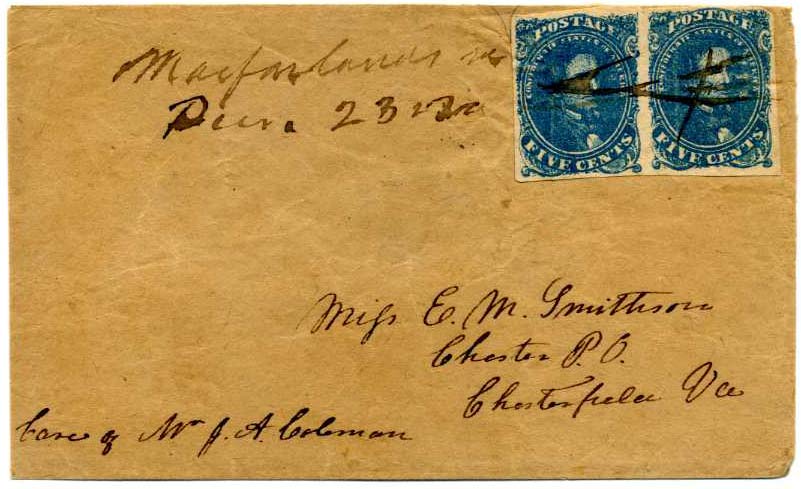 Macfarlands
23
POSTAGE
CONFEDERATE STATES OF AMERICA
FIVE CENTS
POSTAGE
CONFEDERATE STATES OF AMERICA
FIVE CENTS
Miss E. M. Smithson
Chester P.O.
Chesterfield Va
Care of Mr J. A. Coleman